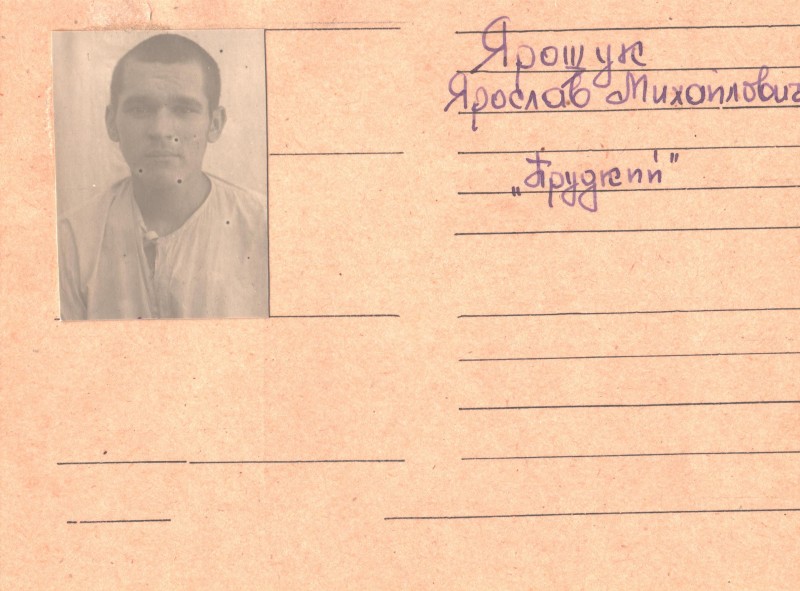 Ярошук
Ярослав Михайлович
„Прудкий"